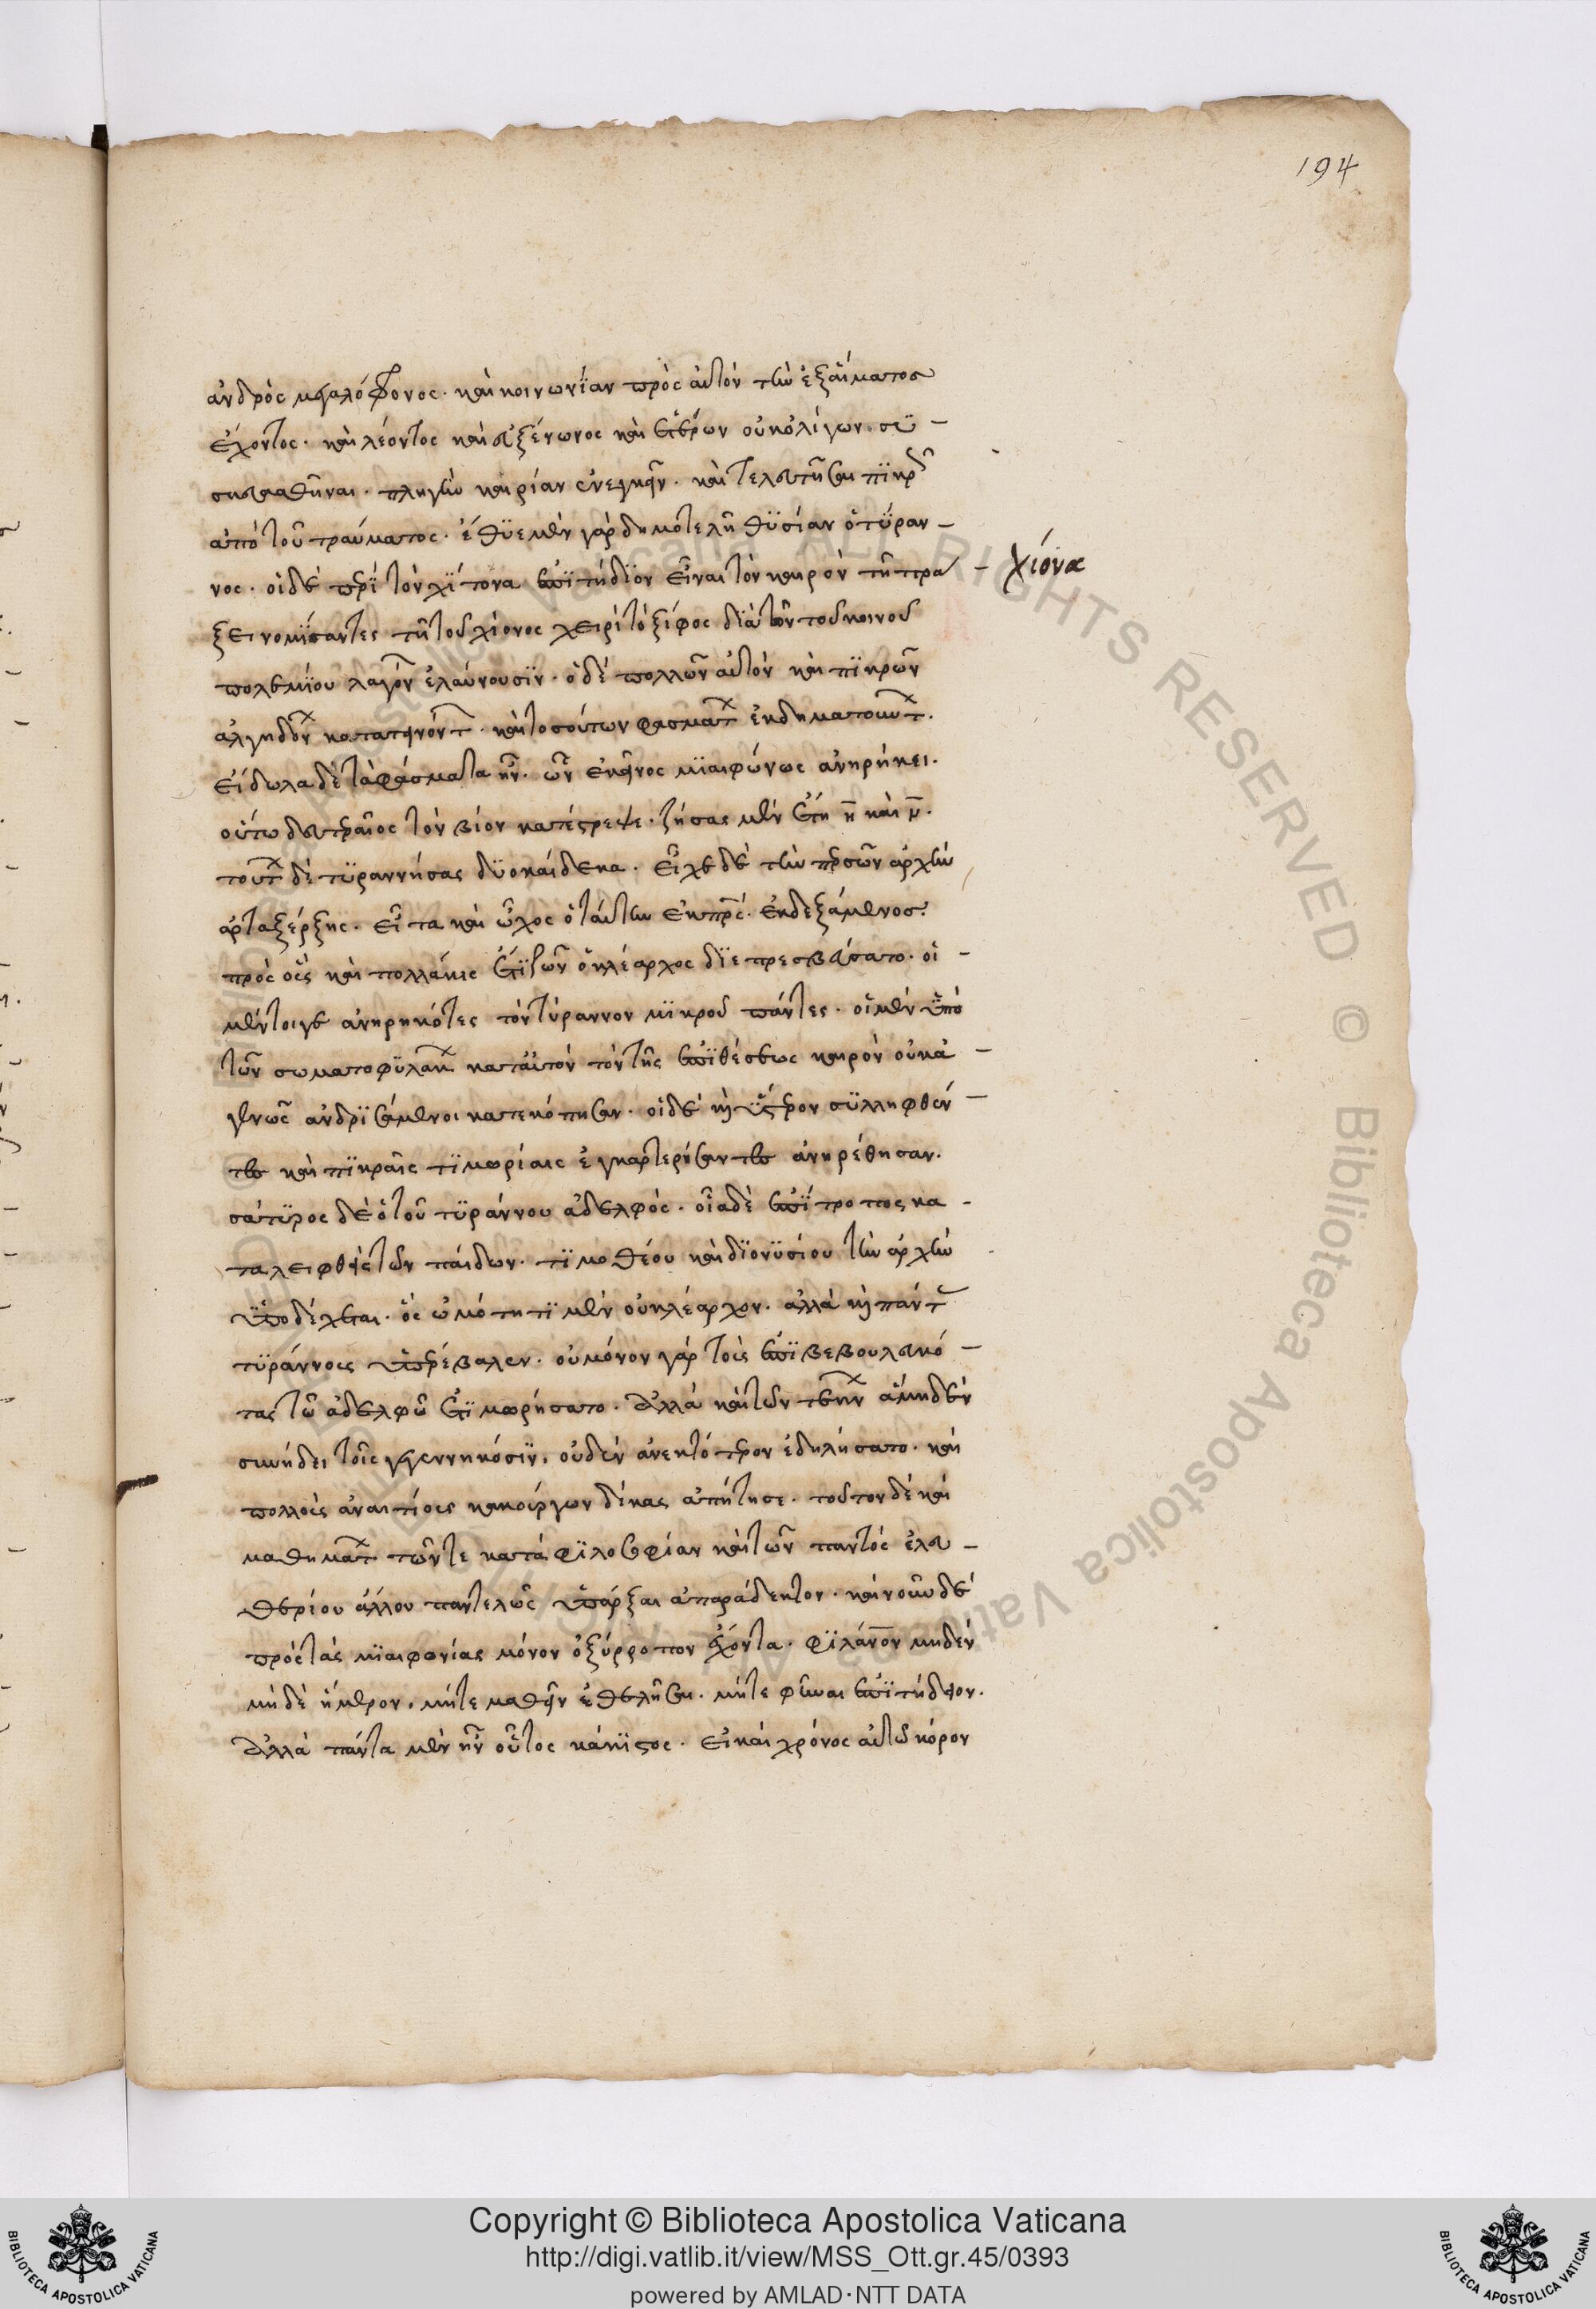 194
ἀνδρὸς μεγαλόφρονος. καὶ κοινωνίαν πρὸς αὐτὸν τὴν ἐξ αἵματος
ἔχοντος. καὶ λέοντος καὶ εὐξένωνος καὶ ἑτέρων οὐκ ὀλίγων. συ-
σκευασθῆναι. πληγὴν καιρίαν ἐνεγκεῖν. καὶ τελευτῆσαι πϊκρῶς
ἀπὸ τοῦ τραύματος. ἔθϋε μὲν γὰρ δημοτελῆ θϋσίαν ὁ τύραν-
νος. οἱ δὲ περὶ τὸν χϊτονα ἐπϊτήδϊον εἶναι τὸν καιρὸν τῆ πρα-
χίονα
ξει νομίσαντες τῆ τοῦ χίονος χειρὶ τὸ ξίφος διὰ τῶν τοῦ κοινοῦ
πολεμίου λαγόνων ἐλαύνουσϊν. ὁ δὲ πολλῶν αὐτὸν καὶ πϊκρῶν
ἀλγηδόνων κατατεινόντων. καὶ τοσούτων φασμάτων ἐκδηματούντων.
εἴδωλα δὲ τὰ φάσματα ἦν. ὧν ἐκεῖνος μϊαιφόνως ἀνηρήκει.
οὕτω δευτεραῖος τὸν βίον κατέστρεψε. ζήσας μὲν ἔτη η καὶ ν.
τούτων δὲ τϋραννήσας δϋοκαίδεκα. εἶχε δὲ τὴν περσῶν ἀρχὴν
ἀρταξέρξης. εἶτα καὶ ὦχος ὁ ταύτην ἐκ πρς. ἐκδεξάμενος.
πρὸς οὓς καὶ πολλάκις ἔτι ζῶν ὁ κλέαρχος δϊεπρεσβεύσατο. οἱ-
μέντοιγε ἀνηρηκότες τὸν τύραννον μϊκροῦ πάντες. οἱ μὲν ὑπὸ
τῶν σωματοφϋλάκων κατ' αὐτὸν τὸν τῆς ἐπϊθέσεως καιρὸν οὐκ ἀ-
γενῶς ἀνδρϊσάμενοι κατεκόπησαν. οἱ δὲ καὶ ὕστερον σϋλληφθέν-
τες καὶ πϊκραῖς τϊμωρίαις ἐγκαρτερήσαντες ἀνηρέθησαν.
σάτϋρος δὲ ὁ τοῦ τϋράννου ἀδελφός. οἷα δὲ ἐπϊτροπος κα-
ταλειφθεὶς τῶν παίδων. τϊμοθέου καὶ δϊονϋσίου τὴν ἀρχὴν
ὑποδέχεται. ὃς ὠμότητϊ μὲν οὐ κλέαρχον. ἀλλὰ καὶ πάντας
τϋράννους ὑπερέβαλεν. οὐ μόνον γὰρ τοὺς ἐπϊβεβουλευκό-
τας τῶ ἀδελφῶ ἐτϊμωρήσατο. ἀλλὰ καὶ τῶν τέκνων ἃ μηδὲν
συνήδει τοῖς γεγεννηκόσϊν, οὐδὲν ἀνεκτότερον ἐδηλήσατο. καὶ
πολλοὺς ἀναιτίους κακούργων δίκας ἀπήτησε. τοῦτον δὲ καὶ
μαθημάτων τῶν τε κατὰ φϊλοσοφίαν καὶ τῶν παντὸς ἐλευ-
θερίου ἄλλου παντελῶς ὑπάρξαι ἀπαράδεκτον. καὶ νοῦν δὲ
πρὸς τὰς μϊαιφονίας μόνον ὀξύρροπον ἔχοντα. φϊλάνον μηδὲν
μηδὲ ἥμερον, μήτε μαθεῖν ἐθελῆσαι. μήτε φῦναι ἐπϊτήδειον.
ἀλλὰ πάντα μὲν ἦν οὗτος κάκϊστος. εἰ καὶ χρόνος αὐτῶ κόρον
Copyright © Biblioteca Apostolica Vaticana
http://digi.vatlib.it/view/MSS_Ott.gr.45/0393
powered by AMLAD·NTT DATA